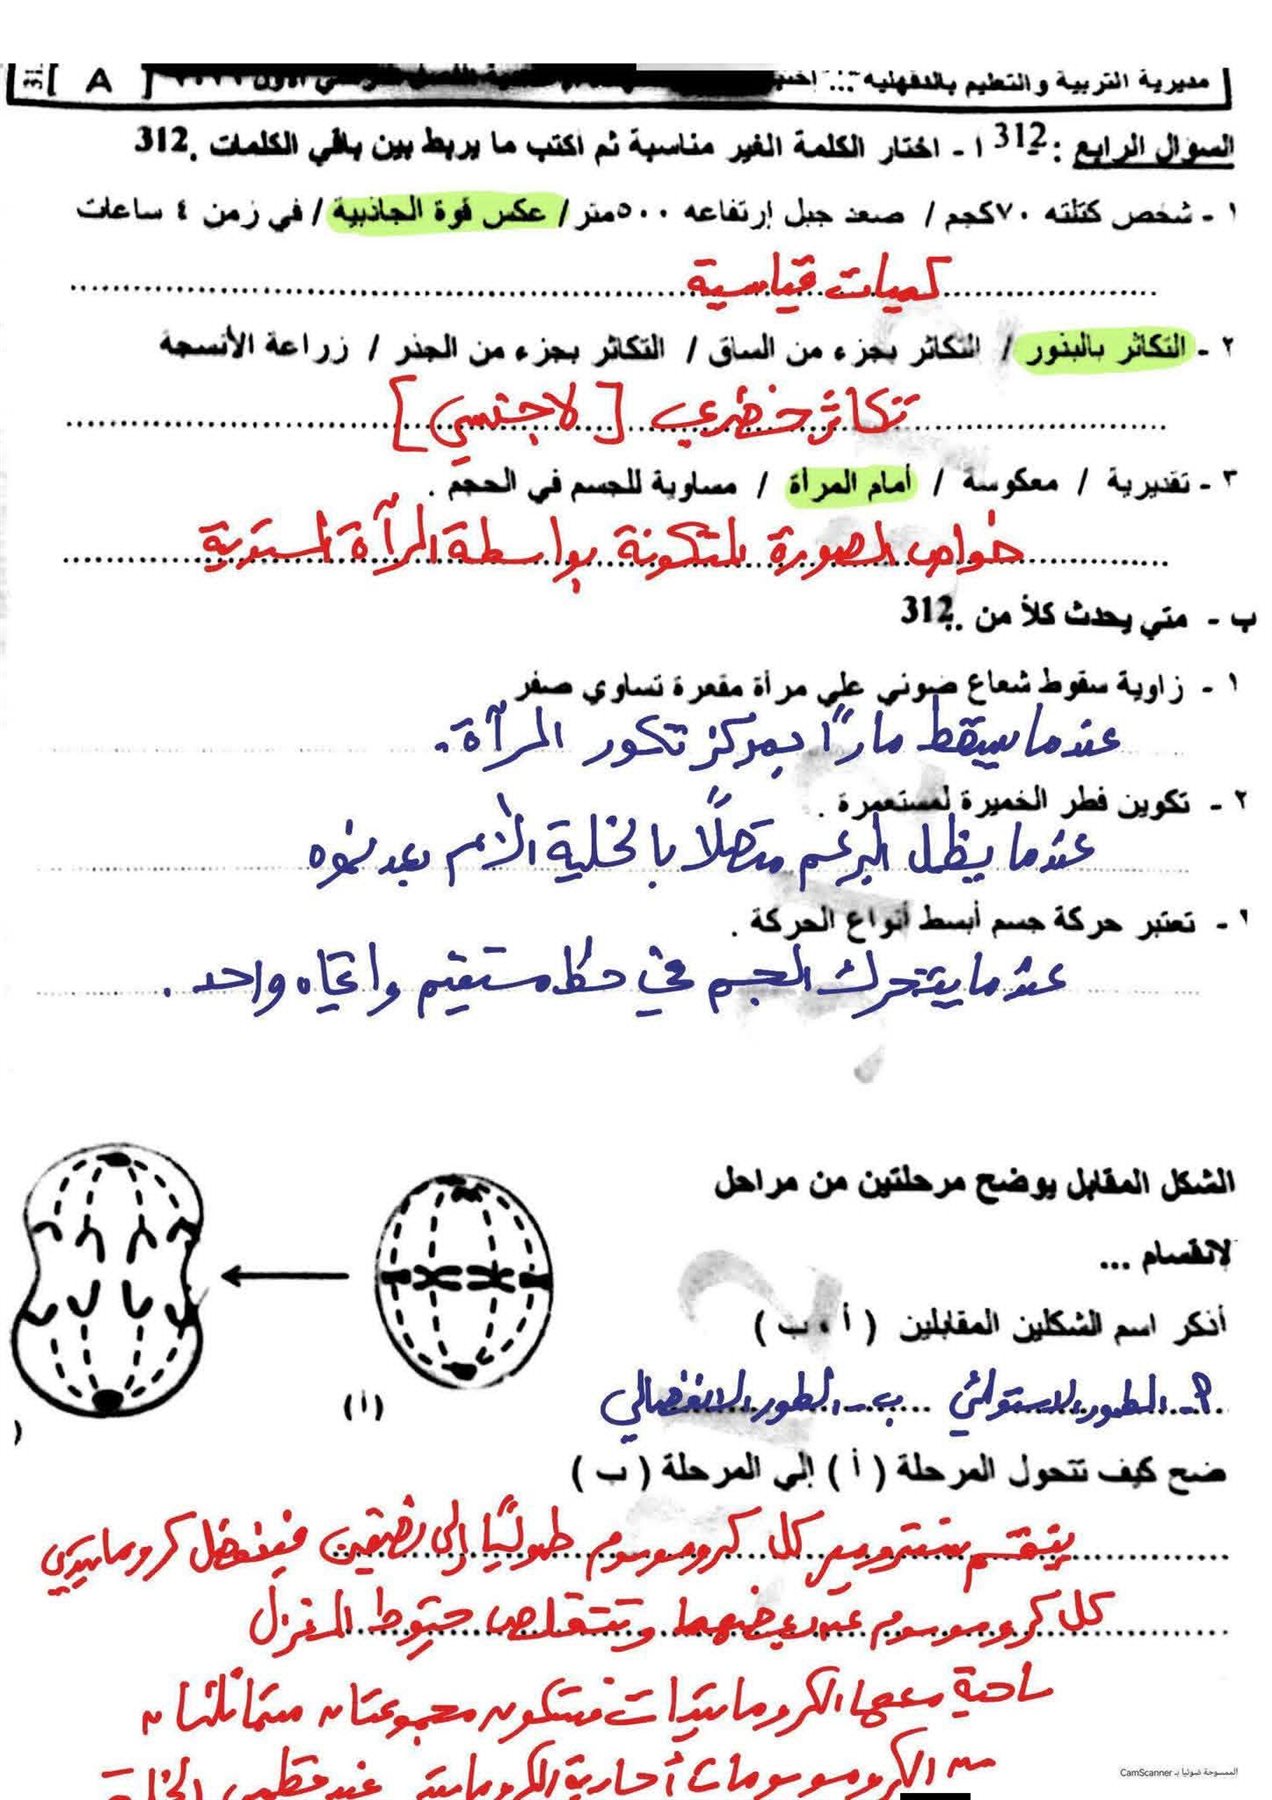 مديرية التربية والتعليم بالدقهلية ...
[ A ]
السؤال الرابع : 312 أ - اختار الكلمة الغير مناسبة ثم اكتب ما يربط بين باقي الكلمات 312.
١ - شخص كتلته ٧٠كجم / صعد جبل إرتفاعه ٥٠٠متر/ عكس قوة الجاذبية / في زمن ٤ ساعات
كميات قياسية
٢ - التكاثر بالبذور / التكاثر بجزء من الساق / التكاثر بجزء من الجذر / زراعة الأنسجة
تكاثر خضري [لاجنسي]
٣ - تقديرية / معكوسة / أمام المرأة / مساوية للجسم في الحجم .
خواص الصورة المتكونة بواسطة المرآة المستوية
ب - متي يحدث كلاً من 312..
١ - زاوية سقوط شعاع ضوئي علي مرأة مقعرة تساوي صفر
عندما يسقط مارًا بمركز تكور المرآة.
٢ - تكوين فطر الخميرة لمستعمرة .
عندما يظل البرعم متصلًا بالخلية الأم بعد نموه
- تعتبر حركة جسم أبسط أنواع الحركة .
عندما يتحرك الجسم في خط مستقيم واتجاه واحد .
الشكل المقابل يوضح مرحلتين من مراحل
لانقسام ...
أذكر اسم الشكلين المقابلين ( أ ، ب )
أ- الطور الاستوائي ب- الطور الانفصالي
(أ)
ضح كيف تتحول المرحلة ( أ ) إلي المرحلة ( ب )
ينقسم سنترومير كل كروموسوم طوليًا إلى نصفين فينفصل كروماتيدي
كل كروموسوم عن بعضهما وتتقلص خيوط المغزل
ساحبة معها الكروماتيدات فتتكون مجموعتان متماثلتان
من الكروموسومات أحادية الكروماتيد عند قطبي الخلية
الممسوحة ضوئيا بـ CamScanner